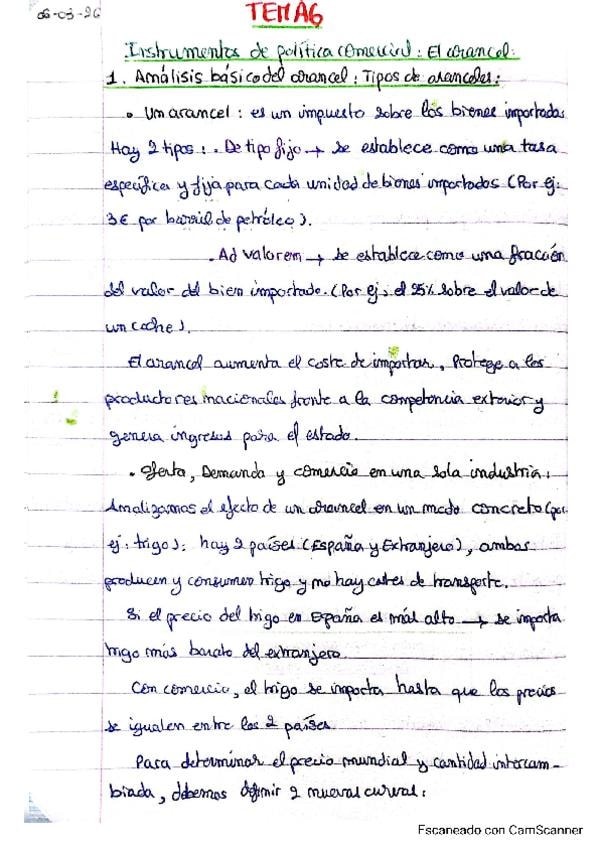 06-03-26
TEMA6
Instrumentos de política comercial: El arancel:
1. Análisis básico del arancel: Tipos de aranceles:
• Un arancel: es un impuesto sobre los bienes importados
Hay 2 tipos: . De tipo fijo → se establece como una tasa
específica y fija para cada unidad de bienes importados (Por ej:
3€ por barril de petróleo).
. Ad valorem → se establece como una fracción
del valor del bien importado. (Por ej, el 25% sobre el valor de
un coche).
El arancel aumenta el coste de importar, Protege a los
productores nacionales frente a la competencia exterior y
genera ingresos para el estado.
• Oferta, Demanda y comercio en una sola industria:
Analizamos el efecto de un arancel en un mcdo concreto (por
ej: trigo): hay 2 países (España y Extranjero), ambos
producen y consumen trigo y no hay costes de transporte.
Si el precio del trigo en España es más alto → se importa
trigo más barato del extranjero
Con comercio, el trigo se importa hasta que los precios
se igualen entre los 2 países
Para determinar el precio mundial y cantidad intercam-
biada, debemos definir 2 nuevas curvas:
Escaneado con CamScanner